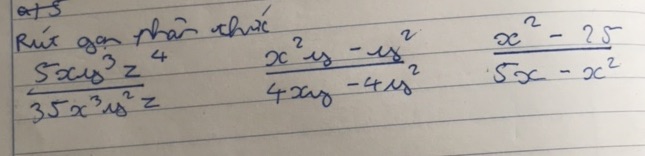 a) 5
Rút gọn phân thức
5xy³z⁴ / 35x³y²z    x²y - y² / 4xy - 4y²    x² - 25 / 5x - x²